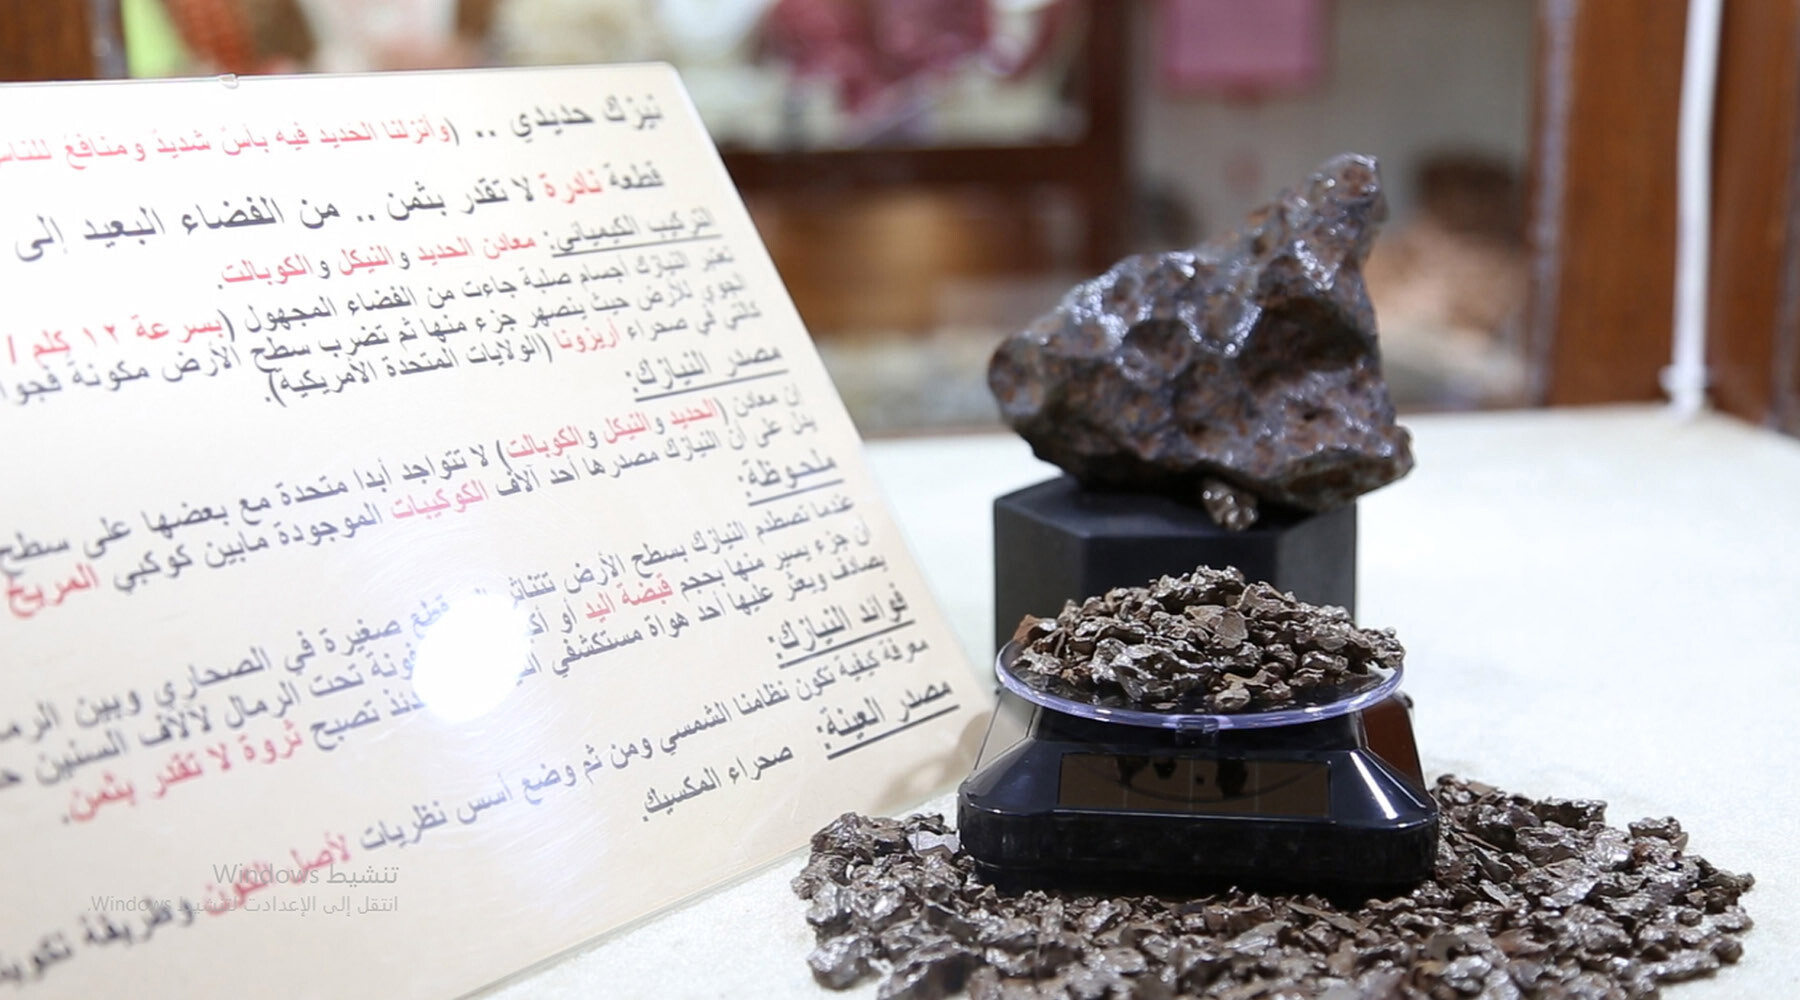 نيزك حديدي .. (وأنزلنا الحديد فيه بأس شديد ومنافع للناس
قطعة نادرة لا تقدر بثمن .. من الفضاء البعيد إلى
التركيب الكيميائي: معادن الحديد والنيكل والكوبالت.
تعتبر النيازك أجسام صلبة جاءت من الفضاء المجهول (بسرعة ١٢ كلم /
الجوي للأرض حيث ينصهر جزء منها ثم تضرب سطح الأرض مكونة فجوا
كالتي في صحراء أريزونا (الولايات المتحدة الأمريكية).
مصدر النيازك:
إن معادن (الحديد والنيكل والكوبالت) لا تتواجد أبدا متحدة مع بعضها على سطح
يدل على أن النيازك مصدرها أحد آلاف الكوكيبات الموجودة مابين كوكبي المريخ
ملحوظة:
عندما تصطدم النيازك بسطح الأرض تتناثر قطع صغيرة في الصحاري وبين الرما
أن جزء يسير منها بحجم قبضة اليد أو تحت الرمال لآلاف السنين
يصادف ويعثر عليها أحد هواة مستكشفي تصبح ثروة لا تقدر بثمن.
فوائد النيازك:
معرفة كيفية تكون نظامنا الشمسي ومن ثم وضع أسس نظريات لأصل الكون وطريقة تكوينه
مصدر العينة: صحراء المكسيك.
تنشيط Windows
انتقل إلى الإعدادت لتنشيط Windows.